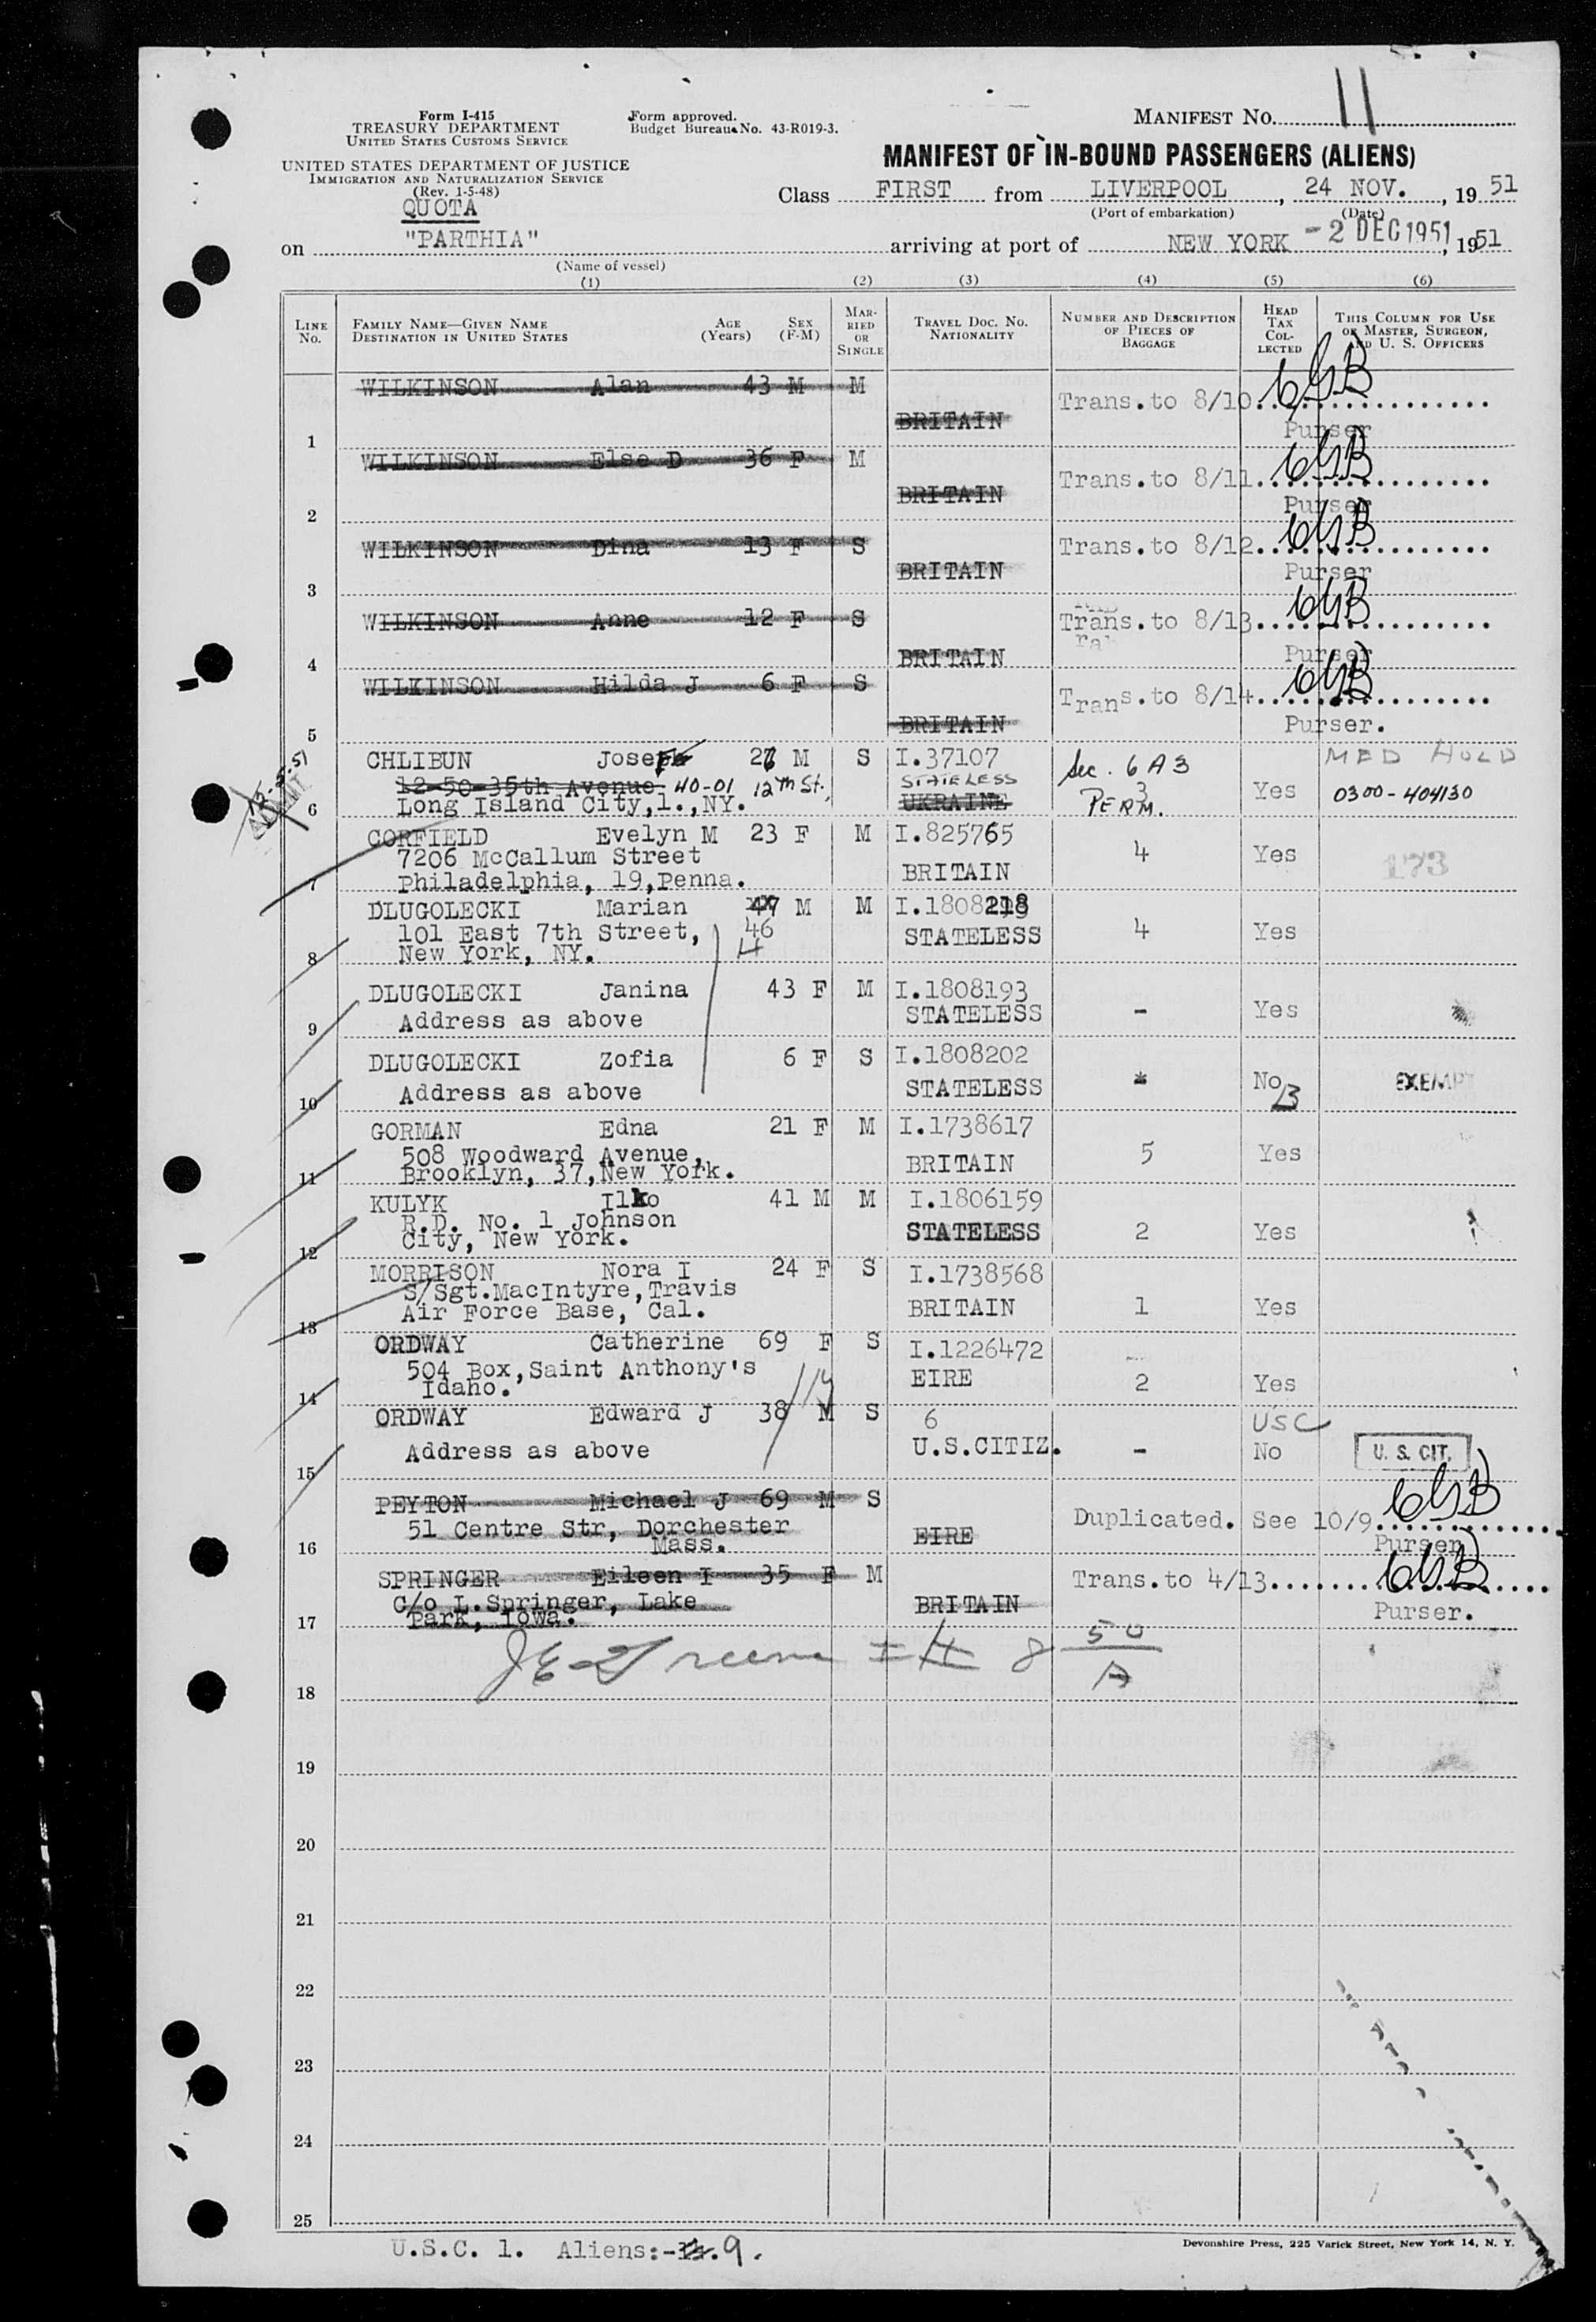 Form I-415
TREASURY DEPARTMENT
UNITED STATES CUSTOMS SERVICE
UNITED STATES DEPARTMENT OF JUSTICE
IMMIGRATION AND NATURALIZATION SERVICE
(Rev. 1-5-48)
QUOTA
Form approved.
Budget Bureau No. 43-R019-3.
MANIFEST NO. 11
MANIFEST OF IN-BOUND PASSENGERS (ALIENS)
Class FIRST from LIVERPOOL, 24 NOV., 19 51
(Port of embarkation) (Date)
on "PARTHIA" arriving at port of NEW YORK -2 DEC 1951, 19 51
(Name of vessel)
(1) (2) (3) (4) (5) (6)
LINE NO. FAMILY NAME—GIVEN NAME DESTINATION IN UNITED STATES AGE (YEARS) SEX (F-M) MARRIED OR SINGLE TRAVEL DOC. NO. NATIONALITY NUMBER AND DESCRIPTION OF PIECES OF BAGGAGE HEAD TAX COLLECTED THIS COLUMN FOR USE OF MASTER, SURGEON, AND U. S. OFFICERS
WILKINSON Alan 43 M M
Trans.to 8/10................
1 BRITAIN Purser
WILKINSON Else D 36 F M
Trans.to 8/11................
2 BRITAIN Purser
WILKINSON Dina 13 F S
Trans.to 8/12................
3 BRITAIN Purser
WILKINSON Anne 12 F S
Trans.to 8/13................
4 BRITAIN Purser
WILKINSON Hilda J 6 F S
Trans.to 8/14................
5 BRITAIN Purser.
CHLIBUN Josef M S I.37107 Sec. 6A3 MED HOLD
12-50-35th Avenue, 40-01 12th St., STATELESS 3
6 Long Island City,1.,NY. UKRAINE PERM. Yes 0300-404130
12-5-51
CORFIELD Evelyn M 23 F M I.825765
7206 McCallum Street 4 Yes 173
7 Philadelphia, 19,Penna. BRITAIN
DLUGOLECKI Marian 47 M M I.1808218
101 East 7th Street, 46 STATELESS 4 Yes
8 New York, NY. 4
DLUGOLECKI Janina 43 F M I.1808193
9 Address as above STATELESS - Yes
DLUGOLECKI Zofia 6 F S I.1808202
10 Address as above STATELESS * No 13 EXEMPT
GORMAN Edna 21 F M I.1738617
508 Woodward Avenue, 5 Yes
11 Brooklyn, 37,New York. BRITAIN
KULYK Ilko 41 M M I.1806159
R.D. No. 1 Johnson
12 City, New York. STATELESS 2 Yes
MORRISON Nora I 24 F S I.1738568
S/Sgt.MacIntyre,Travis
13 Air Force Base, Cal. BRITAIN 1 Yes
ORDWAY Catherine 69 F S I.1226472
504 Box,Saint Anthony's EIRE
14 Idaho. 2 Yes
ORDWAY Edward J 38 M S 6 USC
15 Address as above U.S.CITIZ. - No U. S. CIT.
PEYTON Michael J 69 M S
51 Centre Str, Dorchester Duplicated. See 10/9..............
16 Mass. EIRE Purser
SPRINGER Eileen I 35 F M Trans.to 4/13....................
C/o L.Springer, Lake BRITAIN Purser.
17 Park, Iowa.
8 50
A
18
19
20
21
22
23
24
25
U.S.C. 1. Aliens:- 9.
Devonshire Press, 225 Varick Street, New York 14, N. Y.